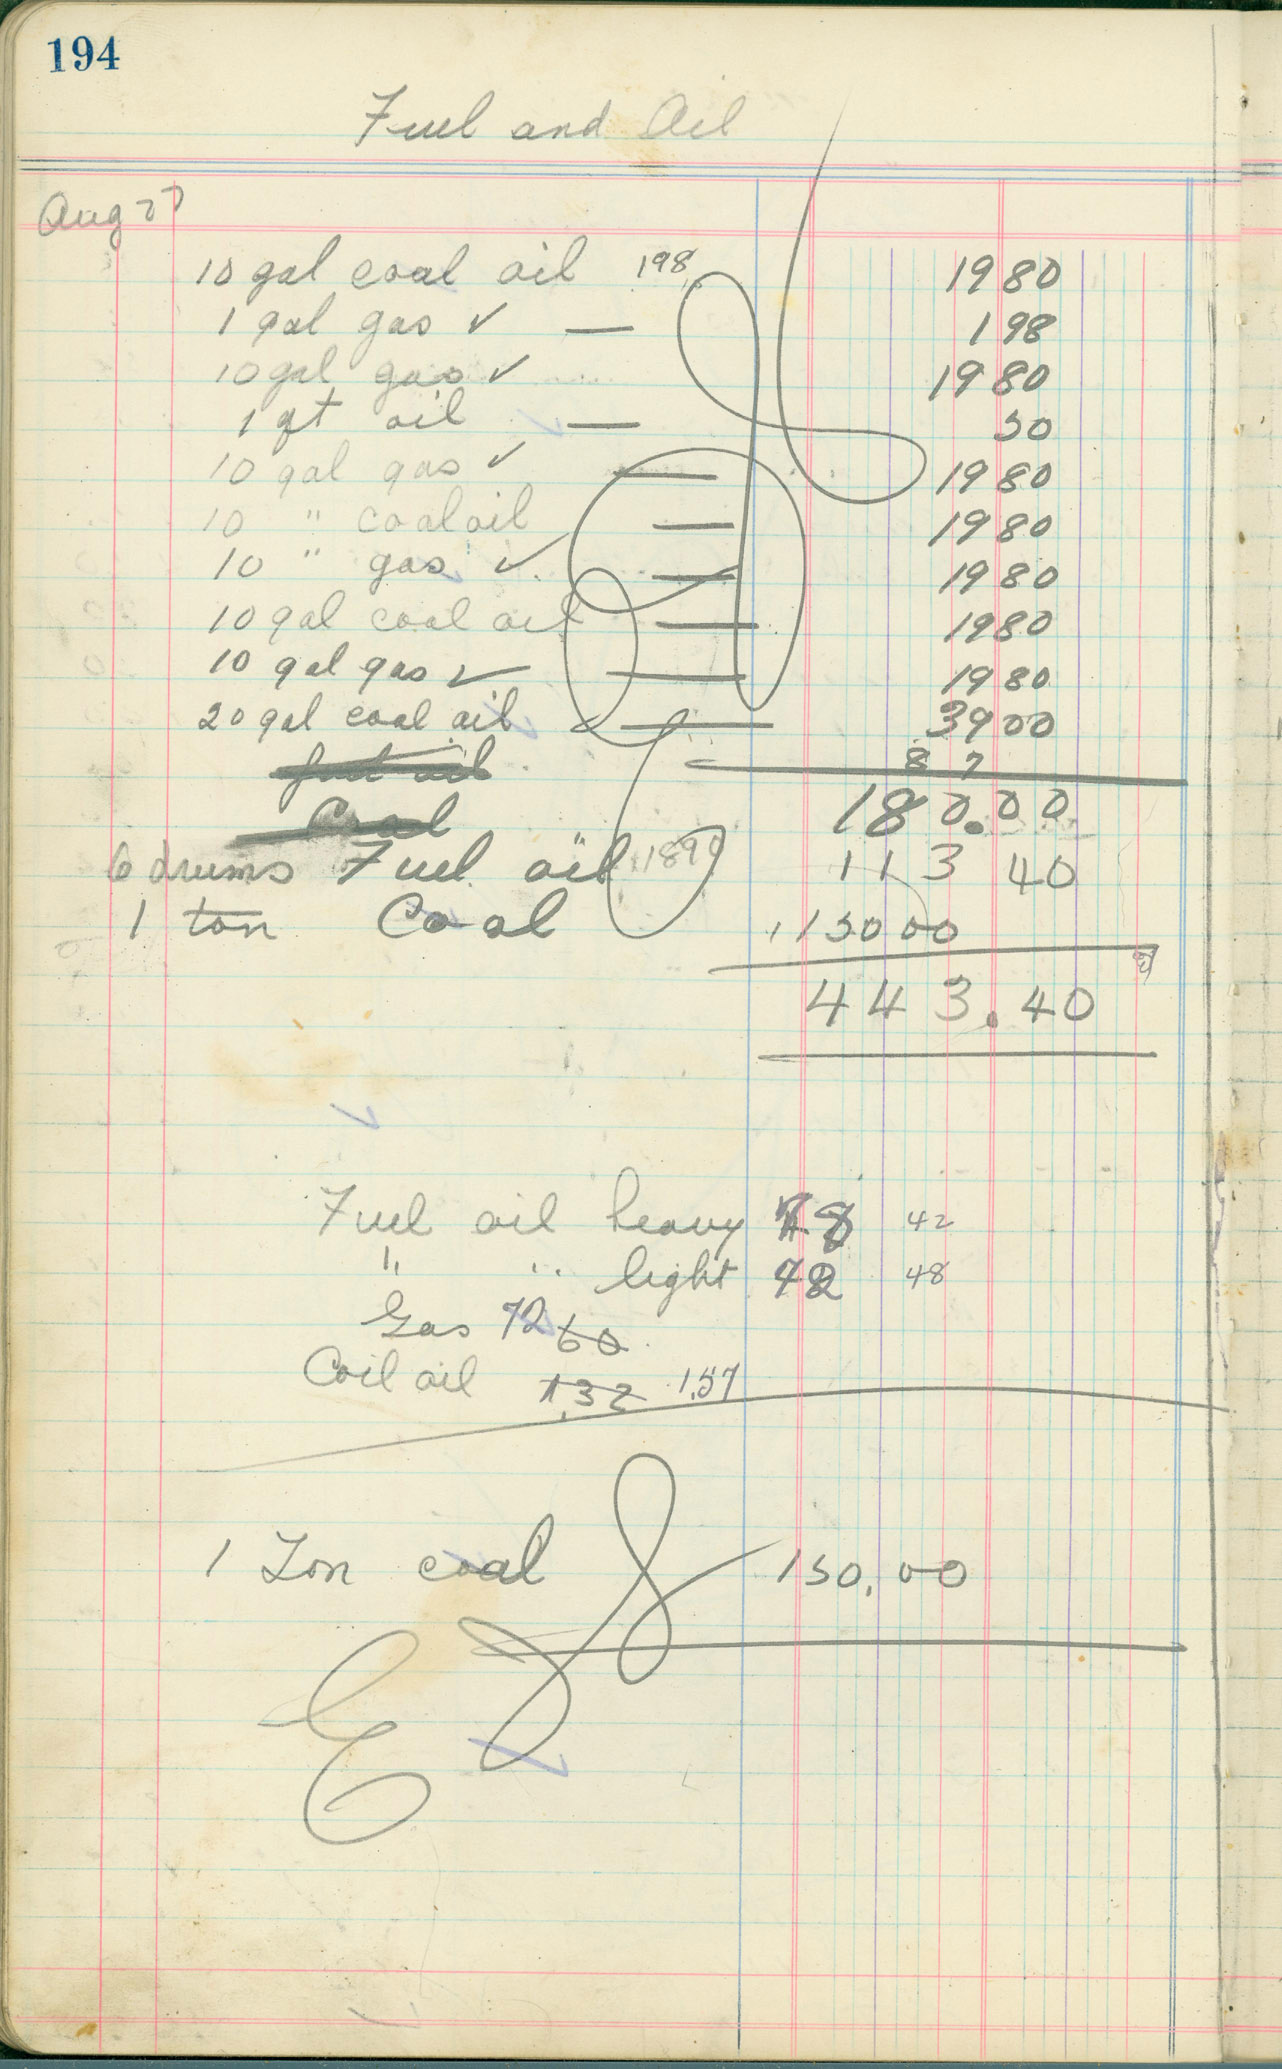 194
Fuel and Oil
Aug 27
10 gal coal oil 198 19 80
1 gal gas ✓ — 1 98
10 gal gas ✓ 19 80
1 qt oil — 50
10 gal gas ✓ — 19 80
10 " coal oil — 19 80
10 " gas ✓ — 19 80
10 gal coal oil — 19 80
10 gal gas ✓ — 19 80
20 gal coal oil — 39 00
fuel oil 8 7
Coal 180.00
6 drums Fuel oil 1890 113 40
1 ton Coal 150 00
443.40
Fuel oil heavy 78 42
" " light 42 48
Gas 72 60
Coil oil 1.32 1.57
1 Ton coal 150.00